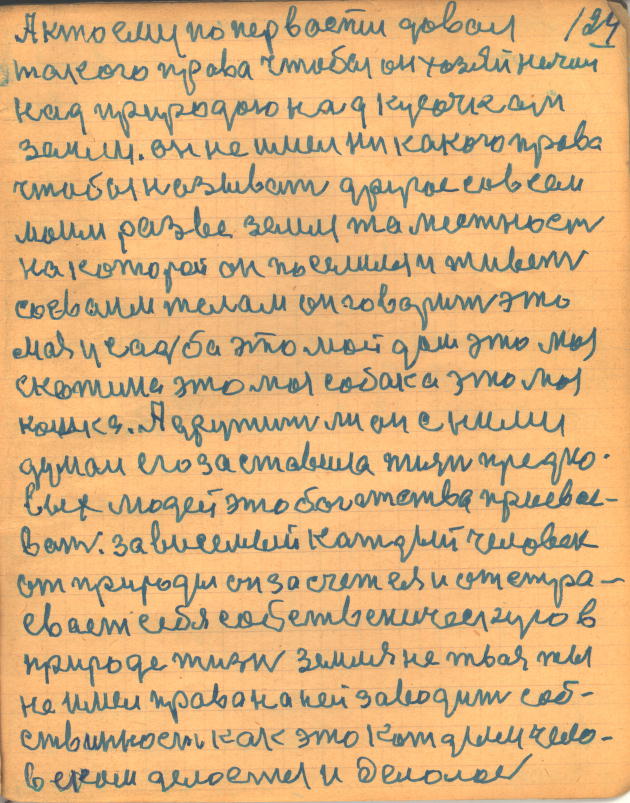 124
А кто ему по первости довал
такого права чтобы он хозяйничал
над природою над кусочкам
земли. он не имел ни какого права
чтобы называт другое совсем
моим разве земля та местност
на которой он поселился и живет
со сваим телам он говорит это
мая усадба это мой дом это моя
скотина это моя собака это моя
кошка. А дружит ли он с ними
думаю его заставила жизн предко-
вых людей это богатства присваи-
ват. зависемый каждый человек
от природы он за счет ея и отстра-
евает себя собственическую в
природе жизн земля не твая ты
не имел права на ней заводит соб-
ствиност как это каждым чело-
веком делается и делолос